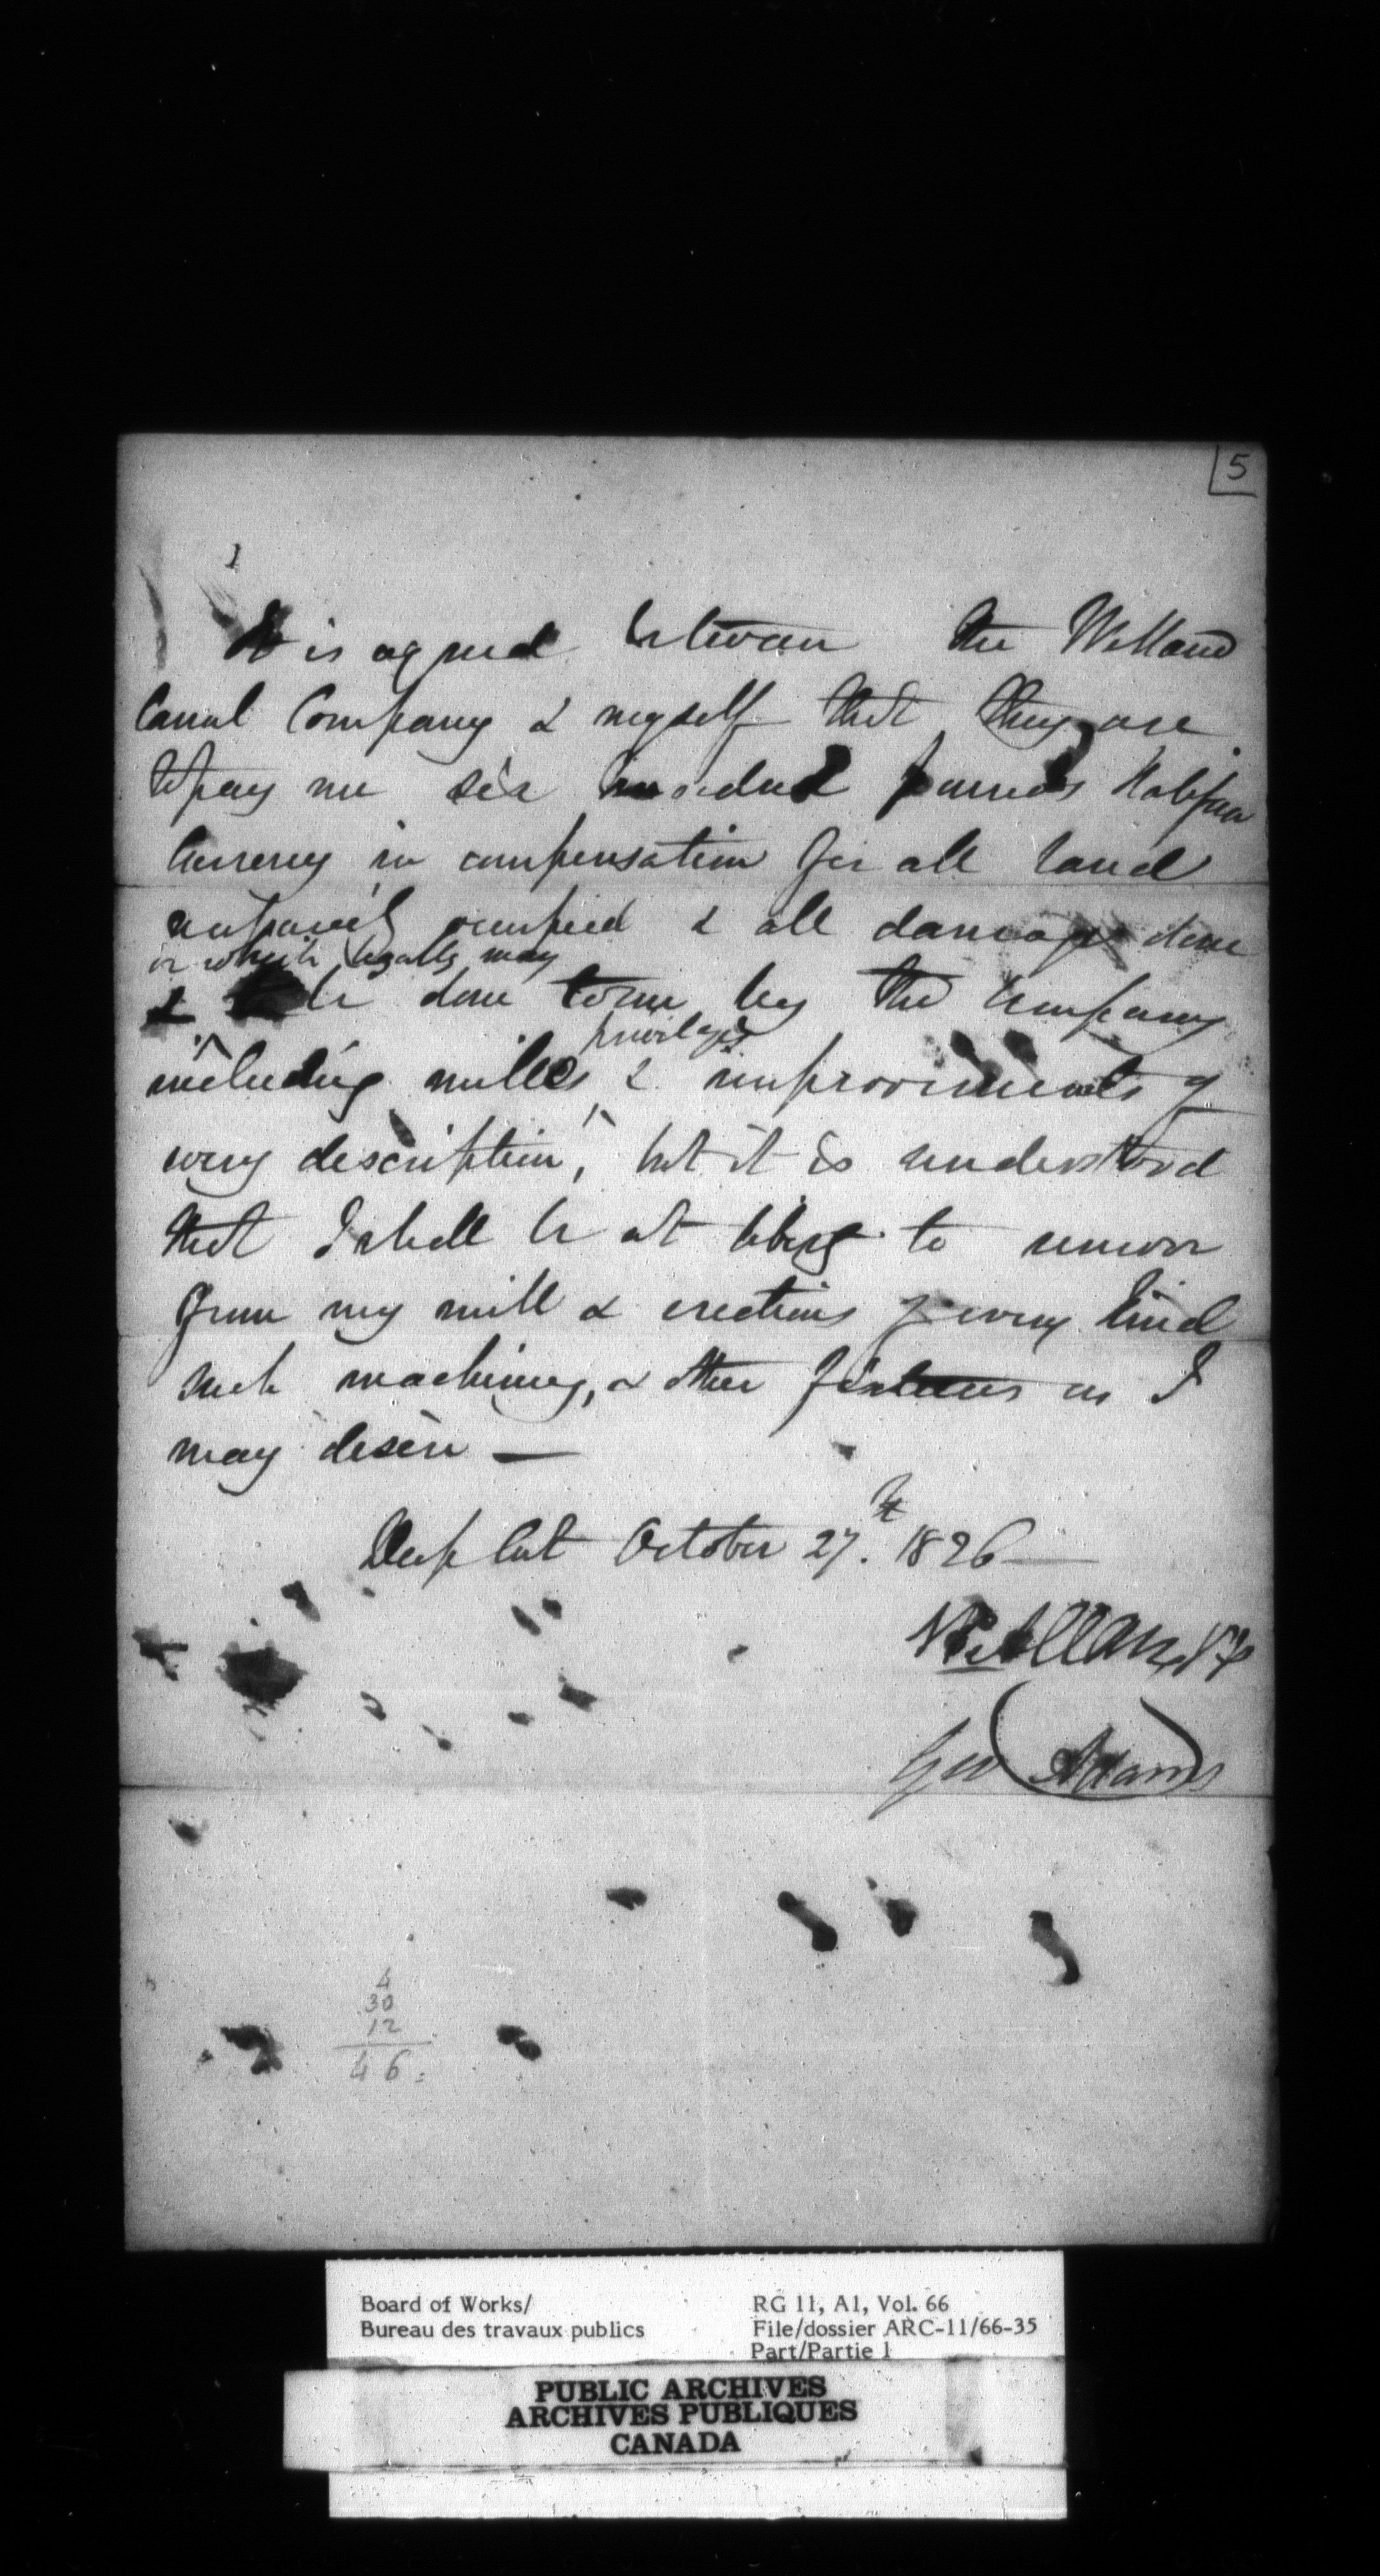 5
It is agreed between the Welland
Canal Company & myself that they are
to pay me six hundred pounds Halifax
Currency in compensation for all land
occupied & all damage done
or which legally may
& be done to me by the Company
privileges
including mills & improvements of
every description, but it is understood
that I shall be at liberty to remove
from my mill & erections of every kind
such machinery, & other fixtures as I
may desire —
Deep Cut October 27th. 1826 —
Geo Adams
4
30
12
46
Board of Works/
Bureau des travaux publics
RG 11, A1, Vol. 66
File/dossier ARC-11/66-35
Part/Partie 1
PUBLIC ARCHIVES
ARCHIVES PUBLIQUES
CANADA